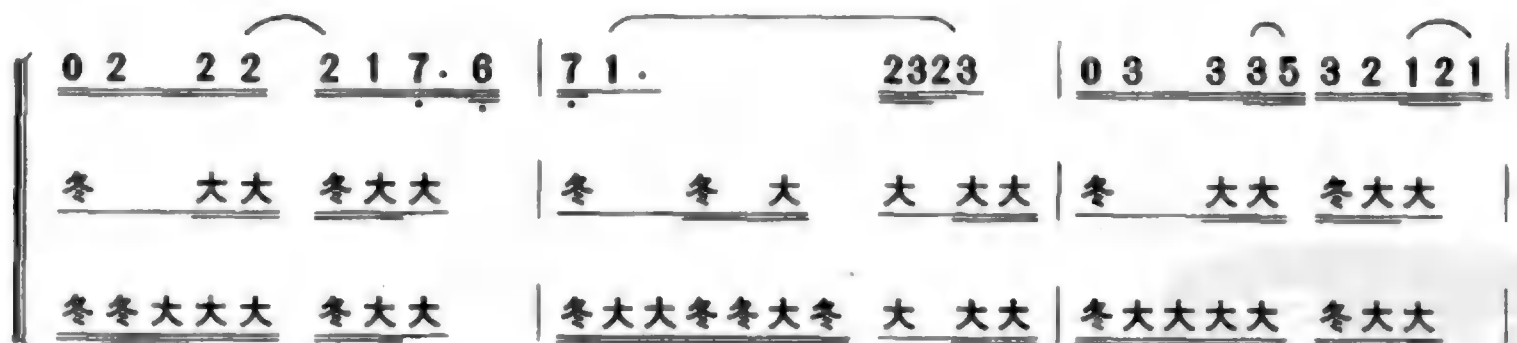 0 2 2 2 2 1 7· 6 | 7 1· 2323 | 0 3 3 35 3 2 121 |
冬 大大 冬大大 | 冬 冬 大 大 大大 | 冬 大大 冬大大 |
冬冬大大大 冬大大 | 冬大大冬冬大冬 大 大大 | 冬大大大大 冬大大 |